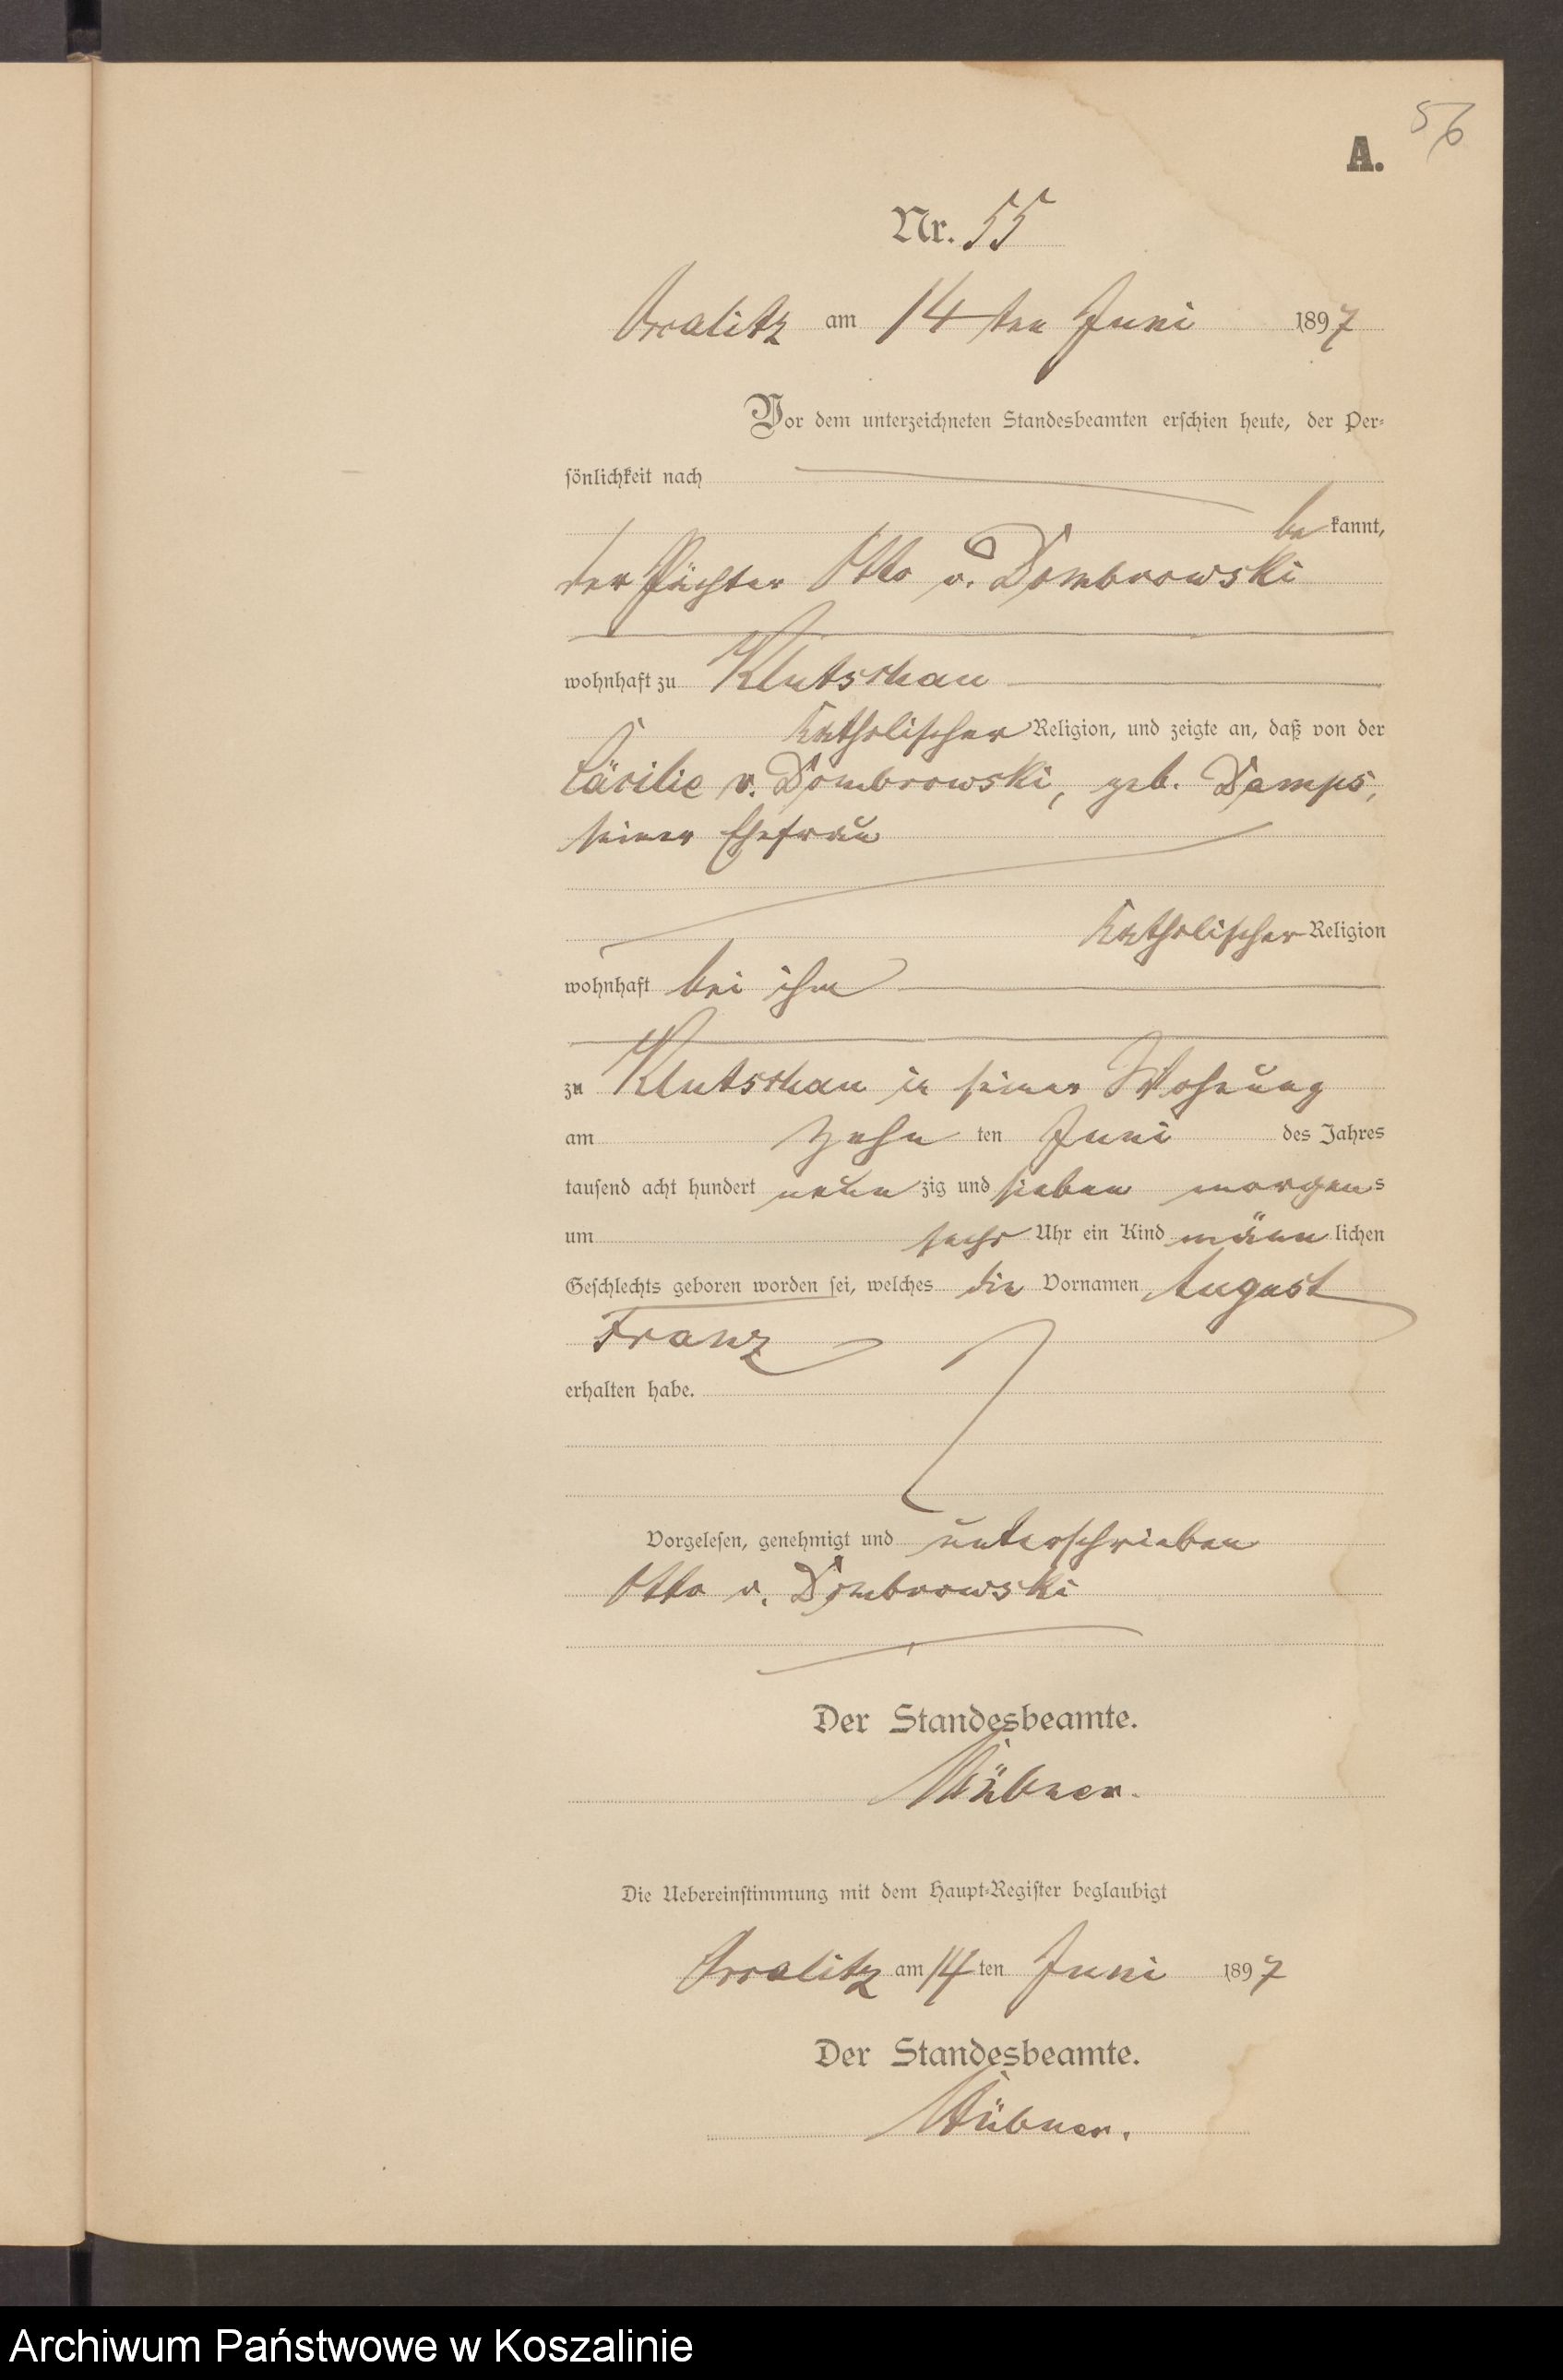 56
A.
Nr. 55
Wralitz am 14ten Juni 1897
Vor dem unterzeichneten Standesbeamten erschien heute, der Per-
sönlichkeit nach
be kannt,
der Pächter Otto v. Dombrowski
wohnhaft zu Klutschau
katholischer Religion, und zeigte an, daß von der
Cäcilie v. Dombrowski, geb. Damps,
seiner Ehefrau
katholischer Religion
wohnhaft bei ihm
zu Klutschau in seiner Wohnung
am zehn ten Juni des Jahres
tausend acht hundert neun zig und sieben morgens
um sechs Uhr ein Kind männ lichen
Geschlechts geboren worden sei, welches die Vornamen August
Franz
erhalten habe.
Vorgelesen, genehmigt und unterschrieben
Otto v. Dombrowski
Der Standesbeamte.
Die Uebereinstimmung mit dem Haupt-Register beglaubigt
am 14 ten Juni 1897
Der Standesbeamte.
Archiwum Państwowe w Koszalinie